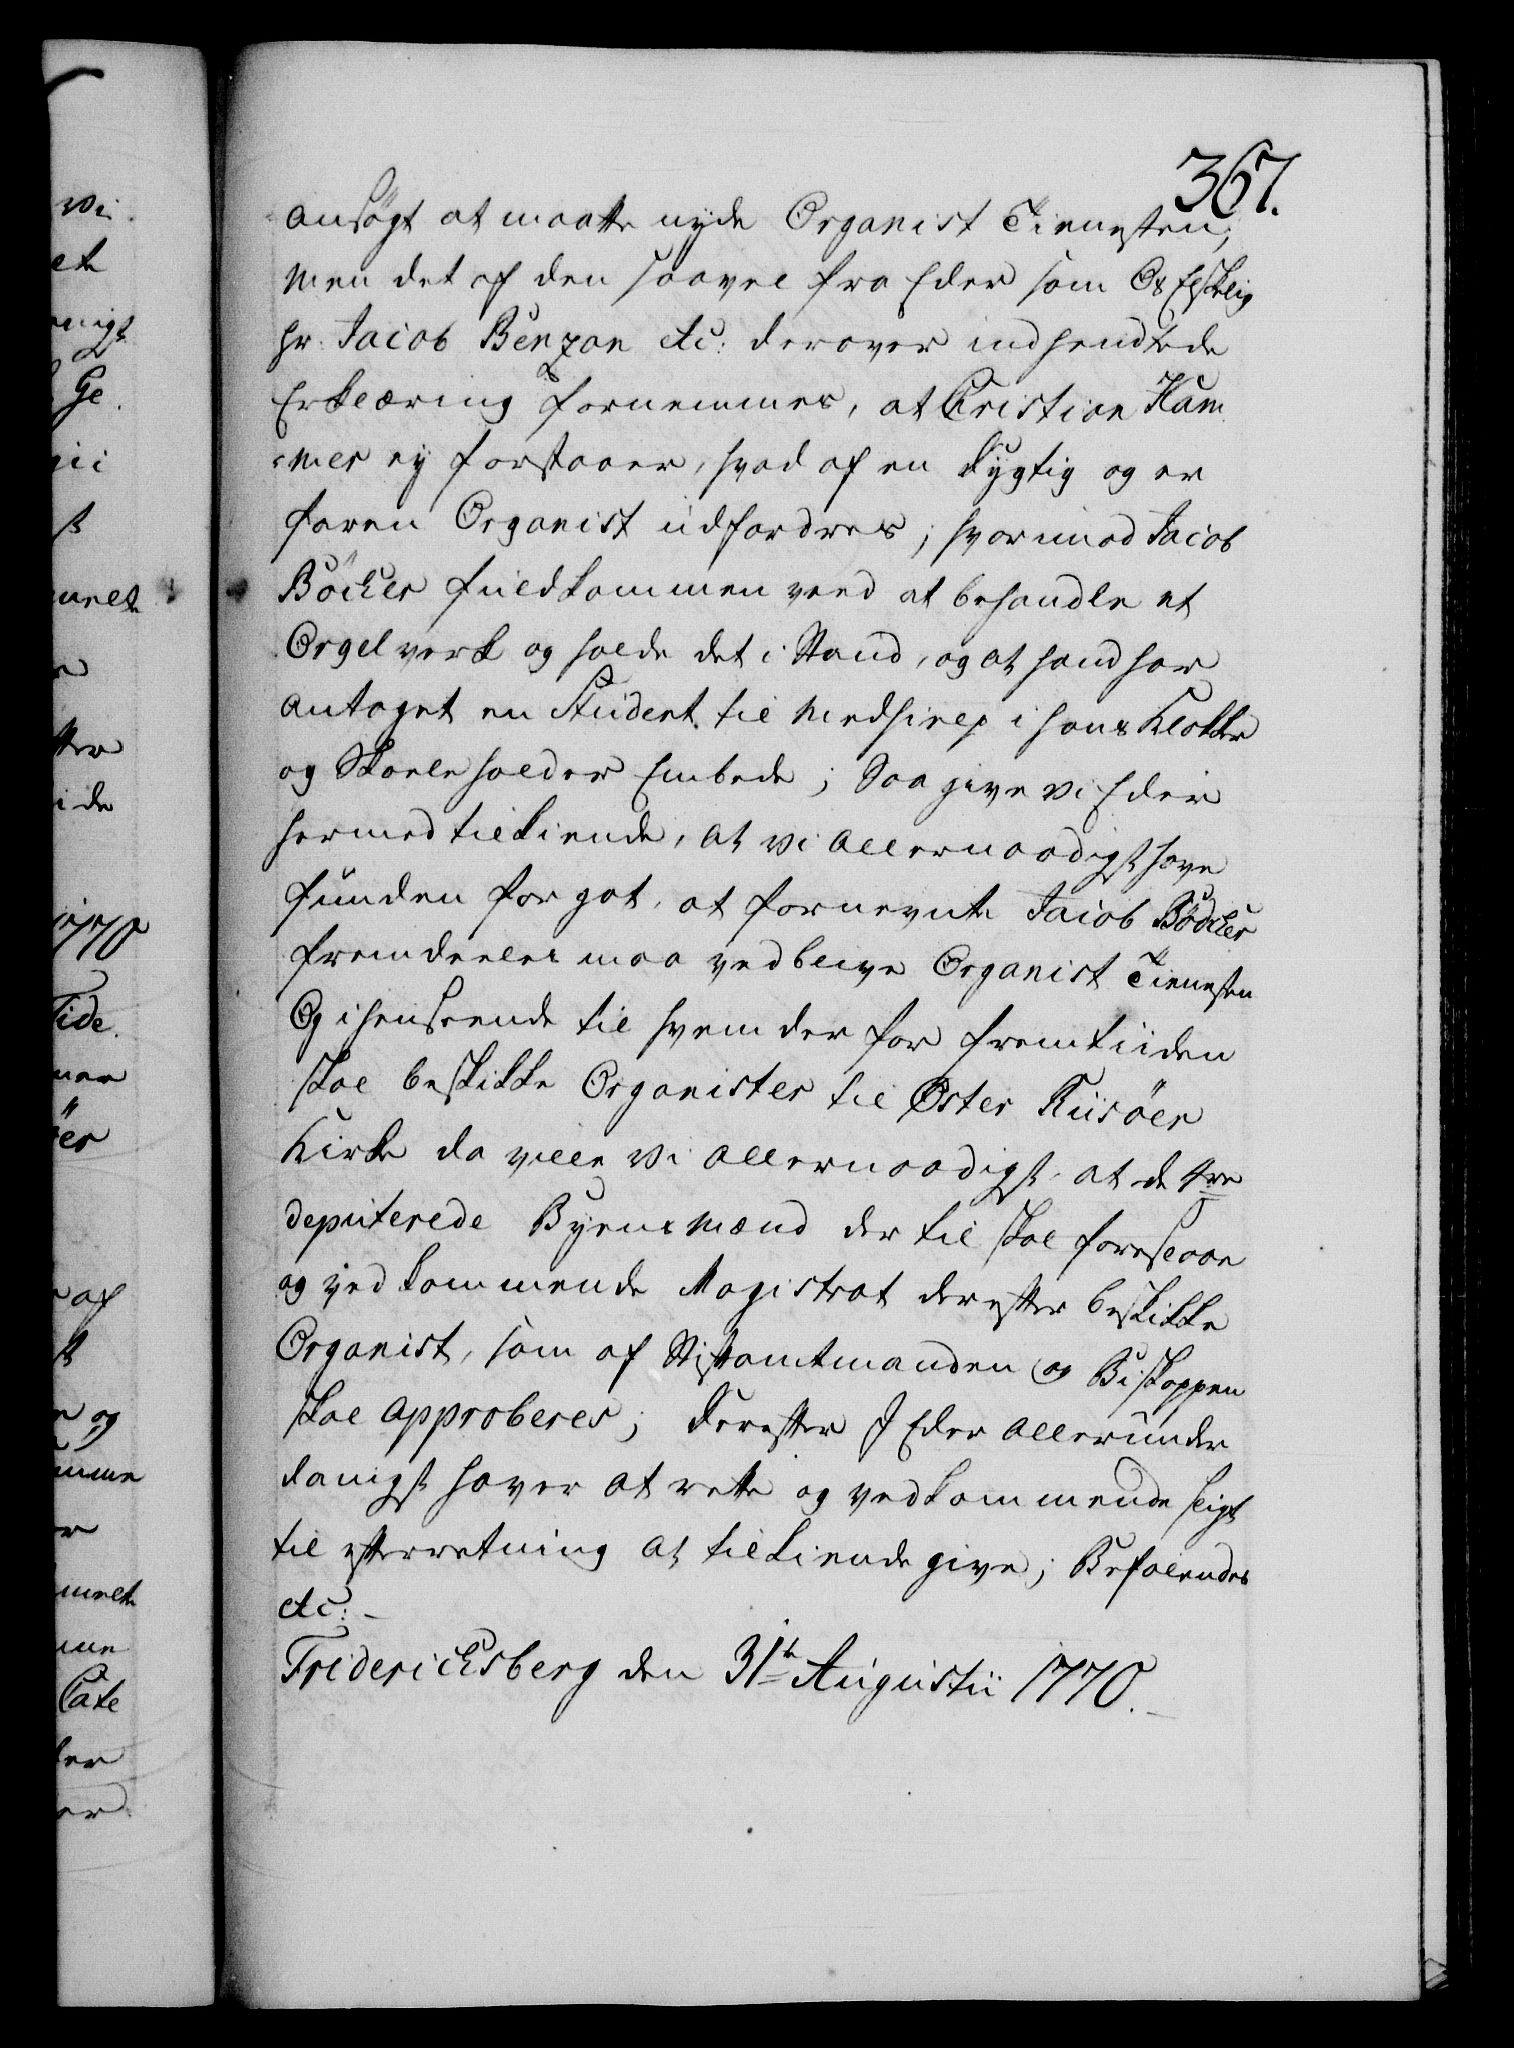 367.
ansøgt at maatte nyde Organist Tienesten;
men det af den saavel fra Eder som Os Elskelig
Hr. Jacob Benzon etc: derover indhendtede
Erklæring fornemmes, at Christian Ham
mer ey forstaaer, hvad af en dygtig og er
faren Organist udfordres; hvorimod Jacob
Böcker fuldkommen veed at behandle et
Orgelverk og holde det i Stand, og at hand har
antaget en Student til Medhielp i hans Klokker
og Skoeleholder Embede; Saa give vi Eder
hermed tilkiende, at vi allernaadigst have
funden for got, at fornevnte Jacob Bödcker
fremdeeles maa vedblive Organist Tienesten
Og i henseende til hvem der for fremtiiden
skal beskikke Organister til Øster Riisöer
Kirke da ville vi allernaadigst, at de 4re
deputerede Byens Mænd der til skal foreslaae
og vedkommende Magistrat derefter beskikke
Organist, som af Stiftamtmanden og Biskoppen
skal approberes; Derefter I Eder allerunder
danigst haver at rette og vedkommende sligt
til efterretning at tilkiendegive; Befalendes
etc:
Friderichsberg den 31te Augustii 1770.
vi